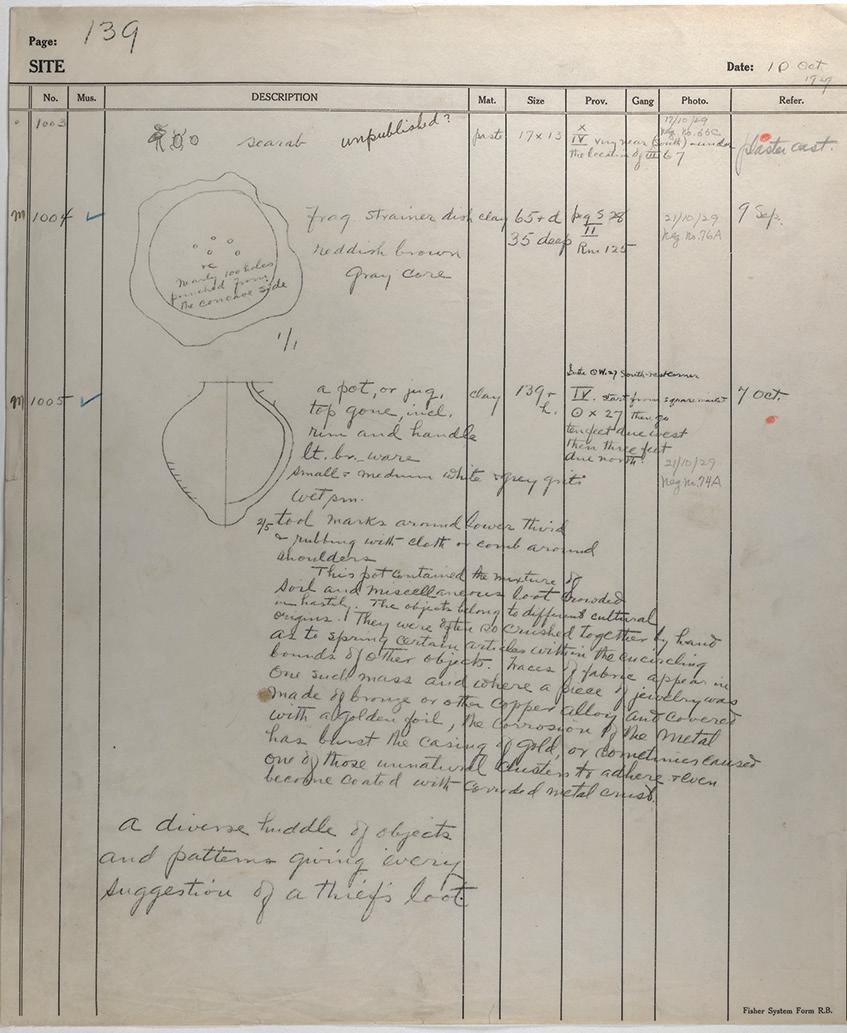 Page: 139
SITE
Date: 10 Oct
No. Mus. DESCRIPTION Mat. Size Prov. Gang Photo. Refer.
1003 scarab unpublished? paste 17 x 13
X
IV very near (south) & under
the location of III 67
17/10/29
Neg. No. 66C
plaster cast.
M 1004 ✓ frag strainer dish clay 65+d
35 deep
reddish brown
gray core
Nearly 100 holes
punched from
the concave side
1/1
peg S 28
II
Rm 125
21/10/29
Neg No. 76A
9 Sep.
M 1005 ✓ a pot, or jug,
top gone, incl.
rim and handle
lt. br. ware
small & medium white & grey grits
wet sm.
2/5
clay 139+
h.
south-west corner
IV. start from square market
O x 27 then go
ten feet due west
then three feet
due north.
21/10/29
Neg No. 74A
7 Oct.
tool marks around lower third
& rubbing with cloth or comb around
shoulders
This pot contained the mixture of
soil and miscellaneous loot crowded
in hastily. The objects belong to different cultural
origins. They were often so crushed together by hand
as to spring certain articles within the encircling
bounds of other objects. Traces of fabric appear in
one such mass and where a piece of jewelry was
made of bronze or other copper alloy and covered
with a golden foil, the corrosion of the metal
has burst the casing of gold, or sometimes caused
one of those unnatural clusters to adhere & even
become coated with corroded metal crust.
a diverse huddle of objects
and patterns giving every
suggestion of a thief's loot
Fisher System Form R.B.